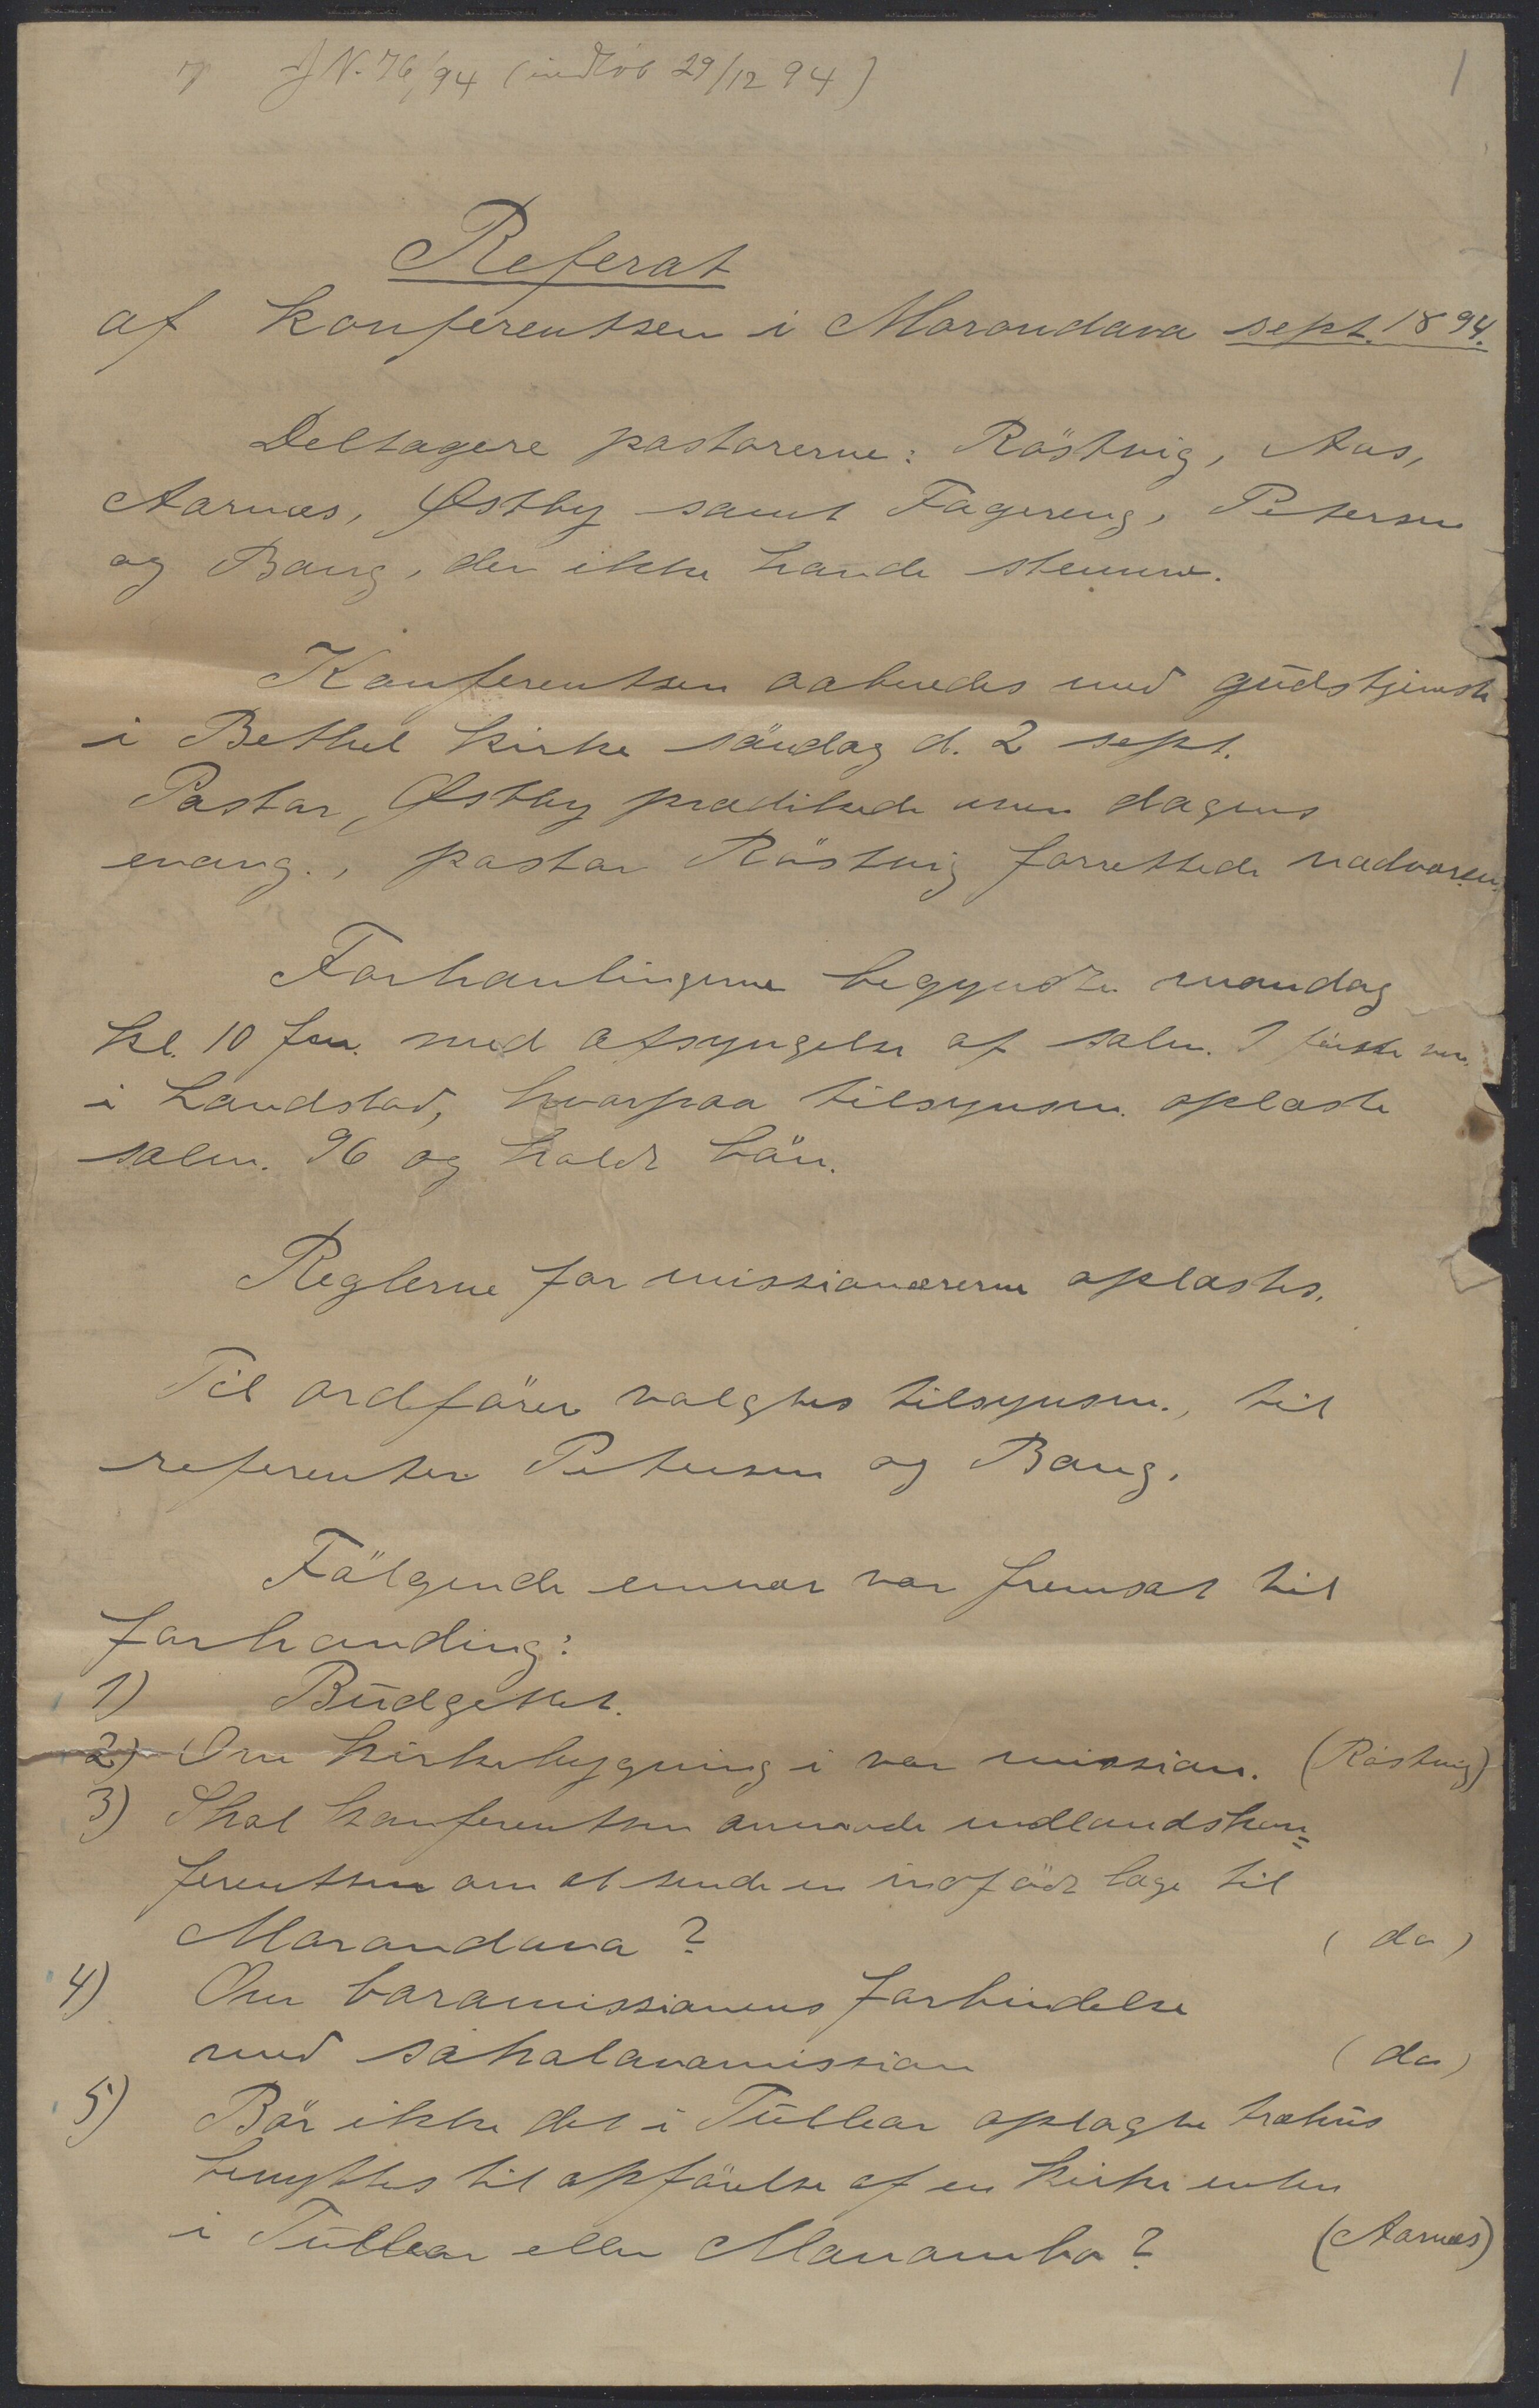 J N. 76/94 (indløb 29/12 94)
1
Referat
af konferentsen i Morondava sept. 1894.
Deltagere pastorerne: Röstvig, Aas,
Aarnes, Østby samt Fagereng, Petersen
og Bang, der ikke havde stemme.
Konferentsen aabnedes med gudstjeneste
i Bethel kirke söndag d. 2 sept.
Pastor Østby prædikede over dagens
evang., pastor Röstvig forrettede nadveren.
Forhanlingerne begyndte mandag
kl. 10 fm. med afsyngelse af salm. 1 förste vers
i Landstad, hvorpaa tilsynsm. oplæste
salm. 96 og holdt bön.
Reglerne for missionærerne oplæstes.
Til ordförer valgtes tilsynsm., til
referenter Petersen og Bang.
Fölgende emner var fremsat til
forhanding:
1) Budgettet.
2) Om kirkebygning i vor mission. (Röstvig)
3) Skal konferentsen anmode indlandskon=
ferentsen om at sende en indfödt læge til
Morondava? (do)
4) Om baramissionens forbindelse
med sakalavamission (do)
5) Bör ikke det i Tullear oplagte træhus
benyttes til opförelse af en kirke enten
i Tullear eller Manombo? (Aarnes)